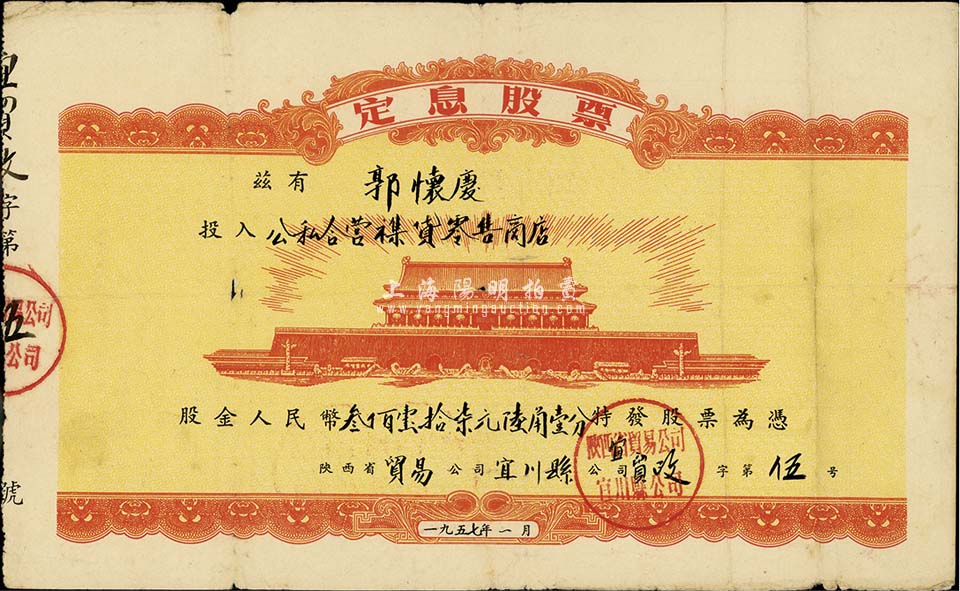 定息股票
茲有 郭懷慶
投入公私合营襍貨零售商店
上海陽明拍賣
www.yangmingauction.com
股金人民幣叁佰壹拾柒元陸角壹分特發股票為憑
陕西省貿易公司宜川縣公司宜貿改字第伍号
陝西省貿易公司
宜川縣公司
一九五七年一月
宜貿改字第伍號
公司
公司